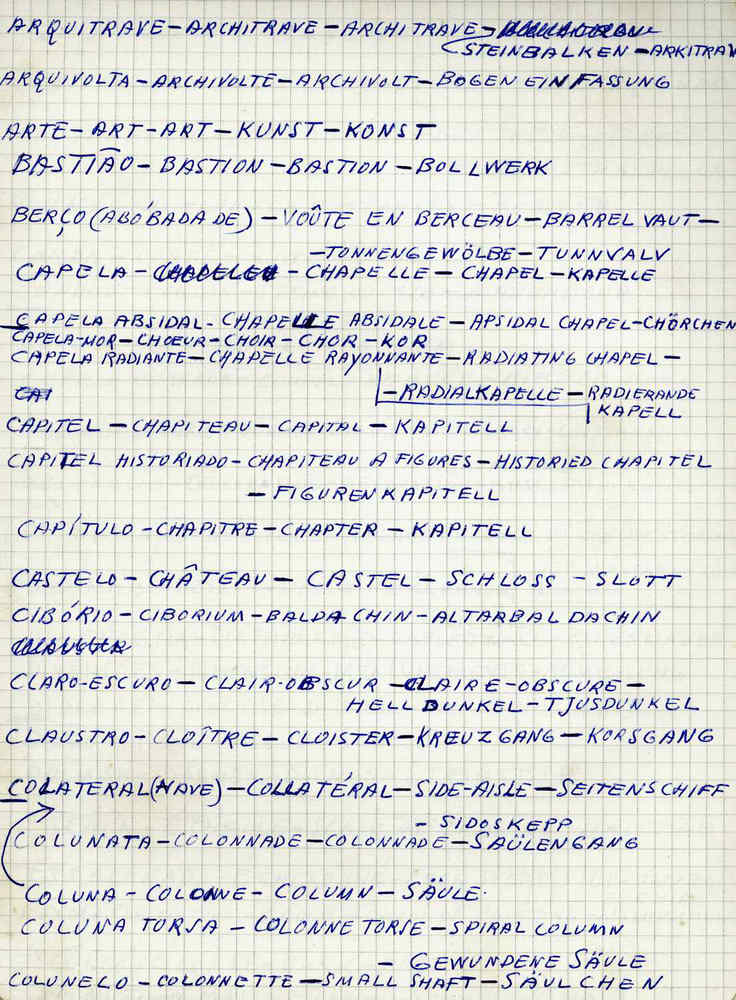 ARQUITRAVE-ARCHITRAVE-ARCHITRAVE-
STEINBALKEN-ARKITRAV
ARQUIVOLTA-ARCHIVOLTE-ARCHIVOLT-BOGENEINFASSUNG
ARTE-ART-ART-KUNST-KONST
BASTIÃO-BASTION-BASTION-BOLLWERK
BERÇO (ABÓBADA DE)-VOÛTE EN BERCEAU-BARREL VAUT-
-TONNENGEWÖLBE-TUNNVALV
CAPELA- -CHAPELLE-CHAPEL-KAPELLE
CAPELA ABSIDAL-CHAPELLE ABSIDALE-APSIDAL CHAPEL-CHÖRCHEN
CAPELA-MOR-CHOEUR-CHOIR-CHOR-KOR
CAPELA RADIANTE-CHAPELLE RAYONNANTE-RADIATING CHAPEL-
-RADIALKAPELLE-RADIERANDE
KAPELL
CAPITEL-CHAPITEAU-CAPITAL-KAPITELL
CAPITEL HISTORIADO-CHAPITEAU A FIGURES-HISTORIED CHAPITEL
-FIGURENKAPITELL
CAPÍTULO-CHAPITRE-CHAPTER-KAPITELL
CASTELO-CHÂTEAU-CASTEL-SCHLOSS-SLOTT
CIBÓRIO-CIBORIUM-BALDACHIN-ALTARBALDACHIN
CLARO-ESCURO-CLAIR-OBSCUR-CLAIRE-OBSCURE-
HELLDUNKEL-TJUSDUNKEL
CLAUSTRO-CLOÎTRE-CLOISTER-KREUZGANG-KORSGANG
COLATERAL (NAVE)-COLLATÉRAL-SIDE-AISLE-SEITENSCHIFF
-SIDOSKEPP
COLUNATA-COLONNADE-COLONNADE-SAÜLENGANG
COLUNA-COLONNE-COLUMN-SÄULE.
COLUNA TORSA-COLONNE TORSE-SPIRAL COLUMN
-GEWUNDENE SÄULE
COLUNELO-COLONNETTE-SMALL SHAFT-SÄULCHEN